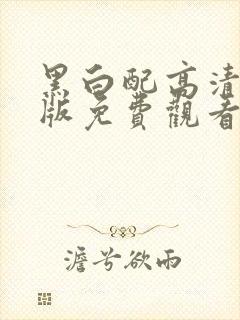 黑白配高清
版免費觀看
澹兮欲雨